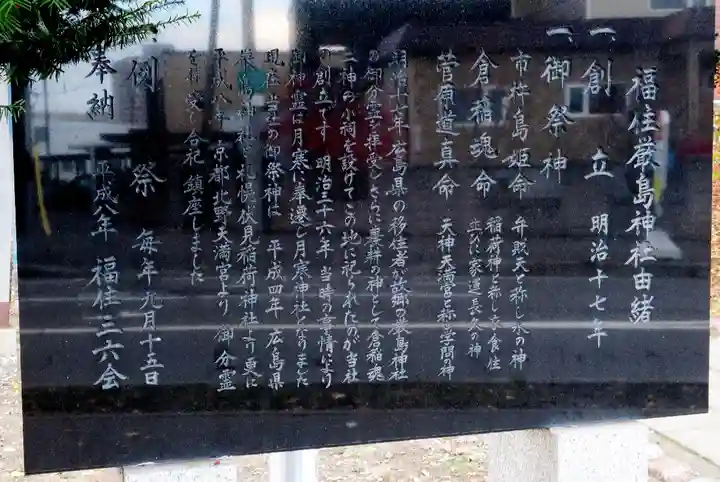 福住厳島神社由緒
一、創立 明治十七年
一、御祭神
市杵島姫命 弁財天と称し水の神
倉稲魂命 稲荷神と称し衣食住
並びに家運長久の神
菅原道真命 天神天満宮と称し学問の神
明治十七年広島県の移住者が故郷の厳島神社
の御分霊を拝受しさらに農耕の神として倉稲魂
二神の小祠を設けてこの地に祀られたのが当社
の創立です 明治三十六年 当時の事情により
御神霊は月寒に奉遷し月寒神社となりました
現在当社の御祭神は 平成四年 広島県
厳島神社と札幌伏見稲荷神社より更に
平成八年 京都北野天満宮より 御分霊
を拝受し合祀 鎮座しました
例祭 毎年九月十五日
奉納 平成八年 福住三六会